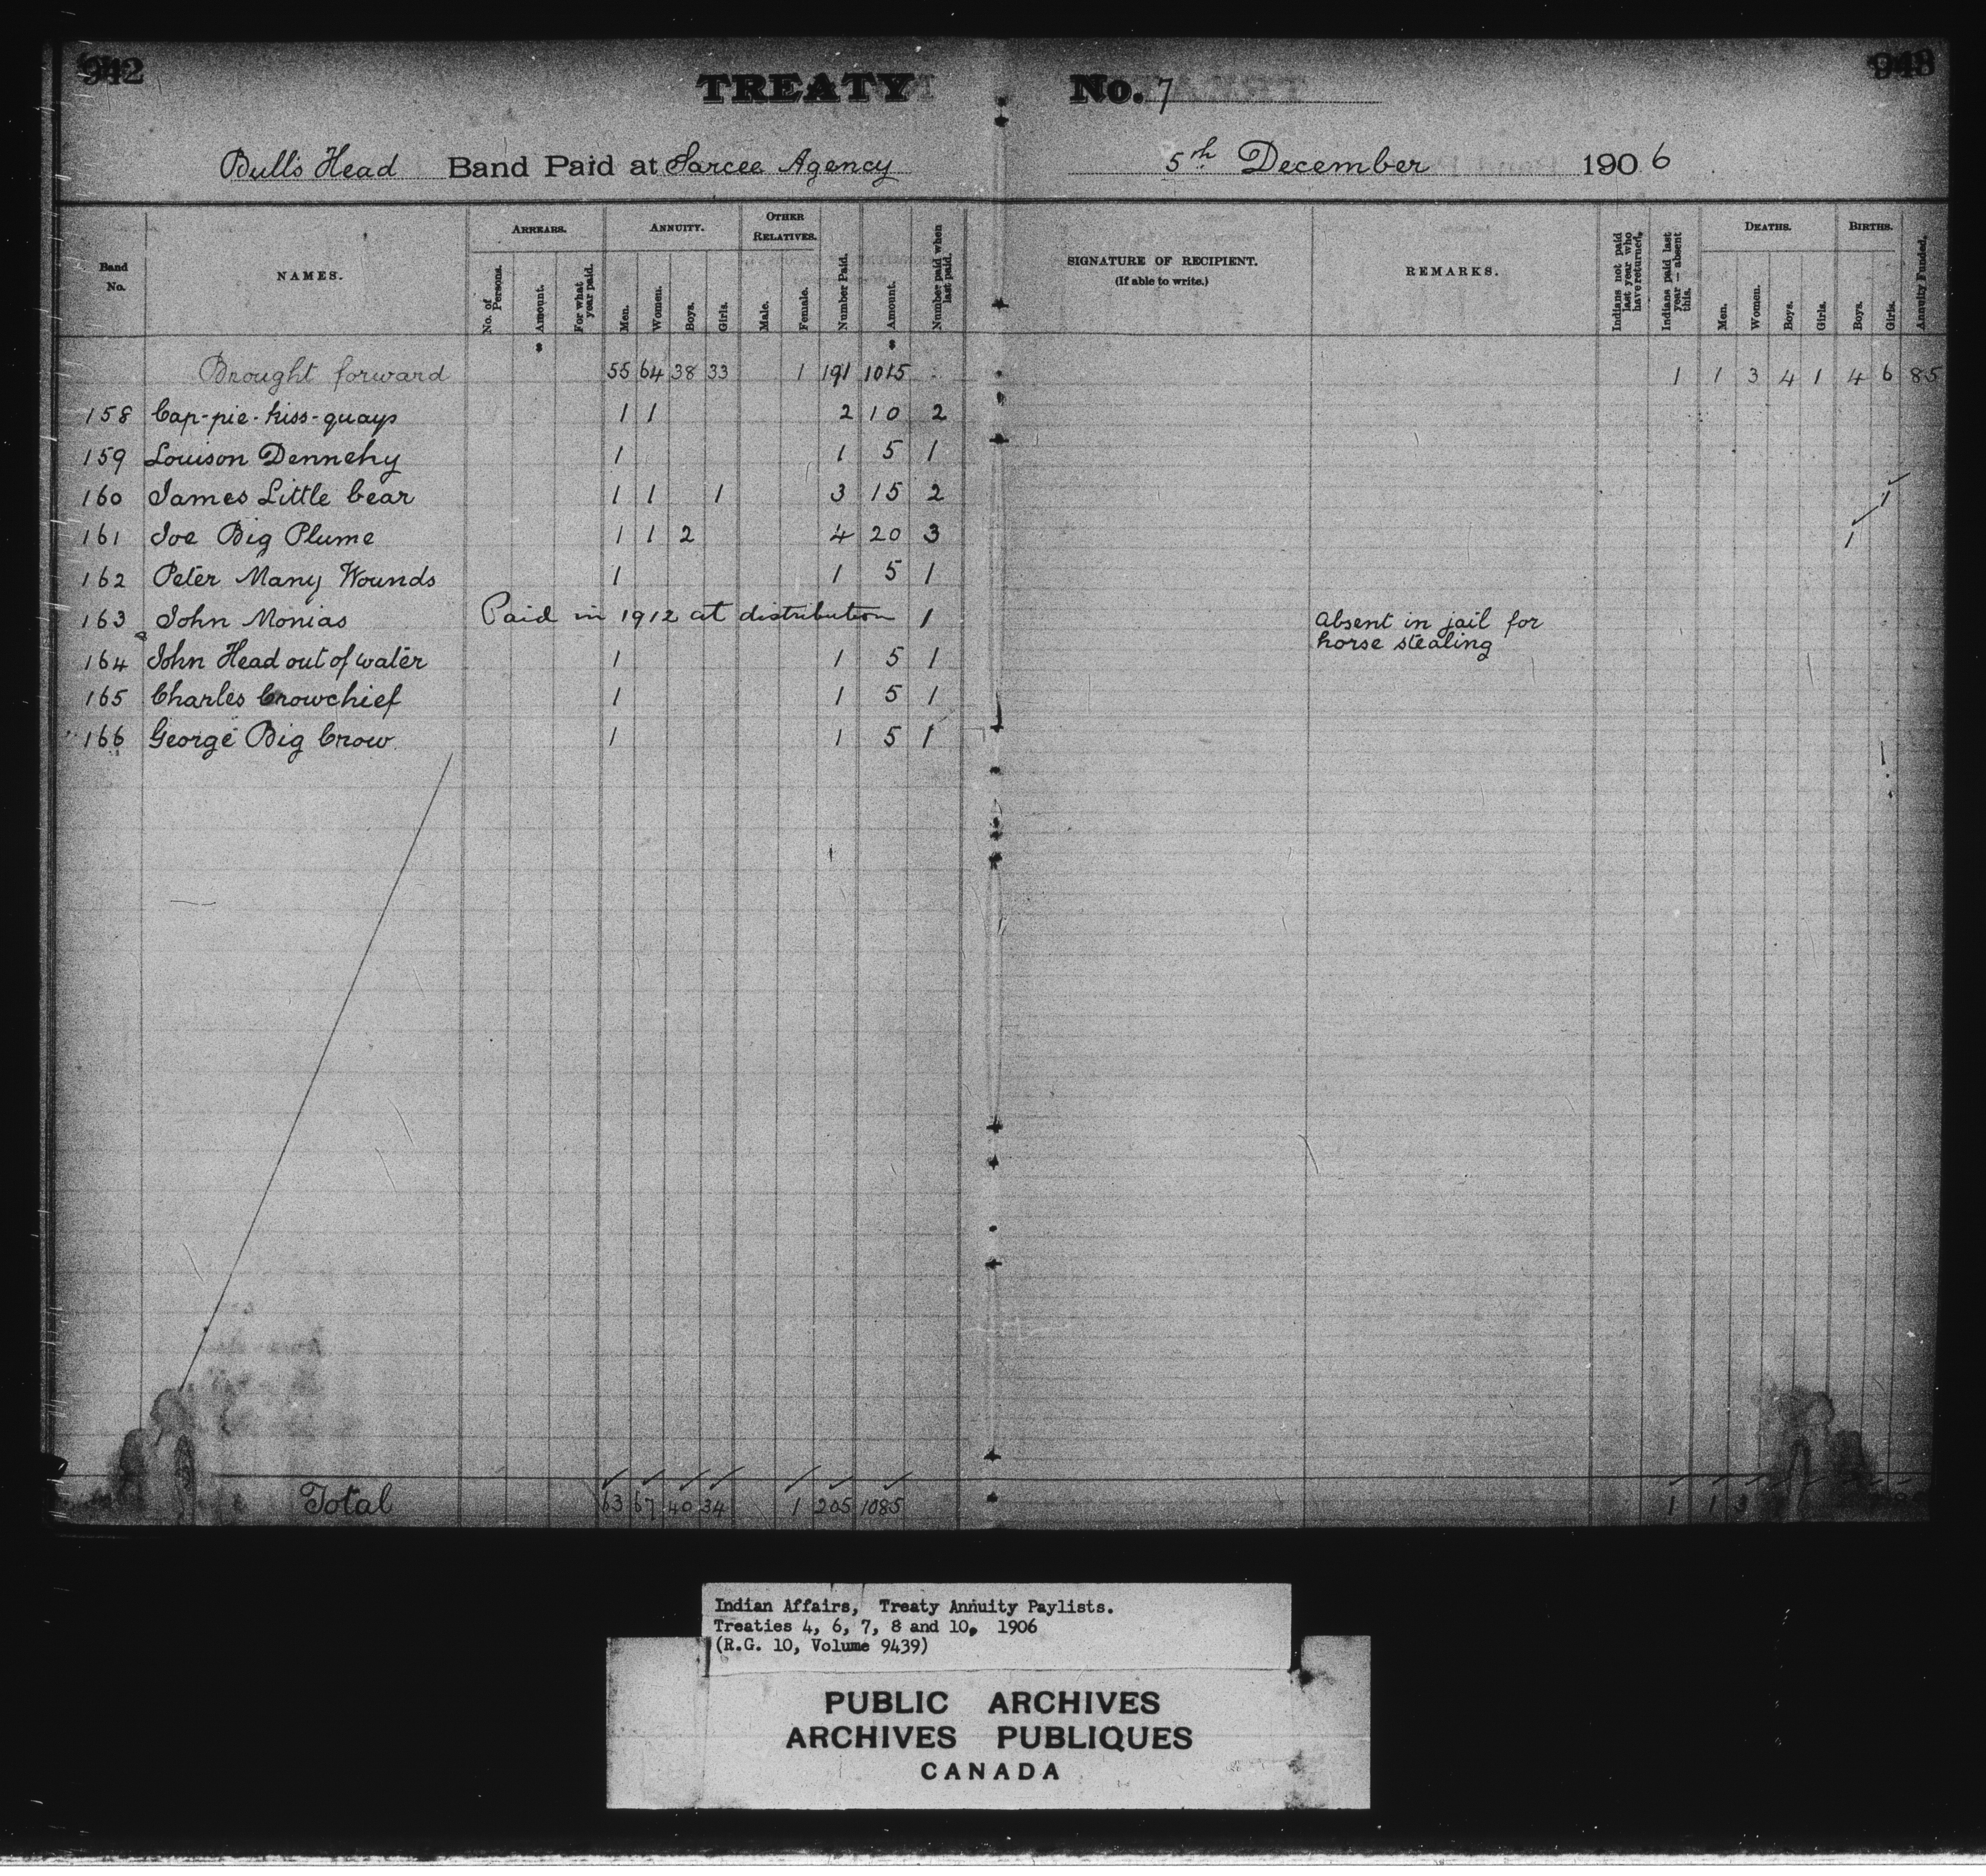 942
TREATY No. 7
Bull's Head Band Paid at Sarcee Agency 5th December 1906
Band No.
NAMES.
ARREARS.
No. of Persons.
Amount.
For what year paid.
ANNUITY.
Men.
Women.
Boys.
Girls.
OTHER RELATIVES.
Male.
Female.
Number Paid.
Amount.
Number paid when last paid.
SIGNATURE OF RECIPIENT.
(If able to write.)
REMARKS.
Indians not paid last year who have returned.
Indians paid last year — absent this.
DEATHS.
Men.
Women.
Boys.
Girls.
BIRTHS.
Boys.
Girls.
Annuity Funded.
$ $
Brought forward 55 64 38 33 1 191 1015 1 1 3 4 1 4 6 85
158 Cap-pie-kiss-quays 1 1 2 10 2
159 Louison Dennehy 1 1 5 1
160 James Little bear 1 1 1 3 15 2 1
161 Joe Big Plume 1 1 2 4 20 3 1
162 Peter Many Wounds 1 1 5 1
163 John Monias Paid in 1912 at distribution 1 Absent in jail for
horse stealing
164 John Head out of water 1 1 5 1
165 Charles Crowchief 1 1 5 1
166 George Big Crow 1 1 5 1
Total 63 67 40 34 1 205 1085 1 1 3
Indian Affairs, Treaty Annuity Paylists.
Treaties 4, 6, 7, 8 and 10, 1906
(R.G. 10, Volume 9439)
PUBLIC ARCHIVES
ARCHIVES PUBLIQUES
CANADA